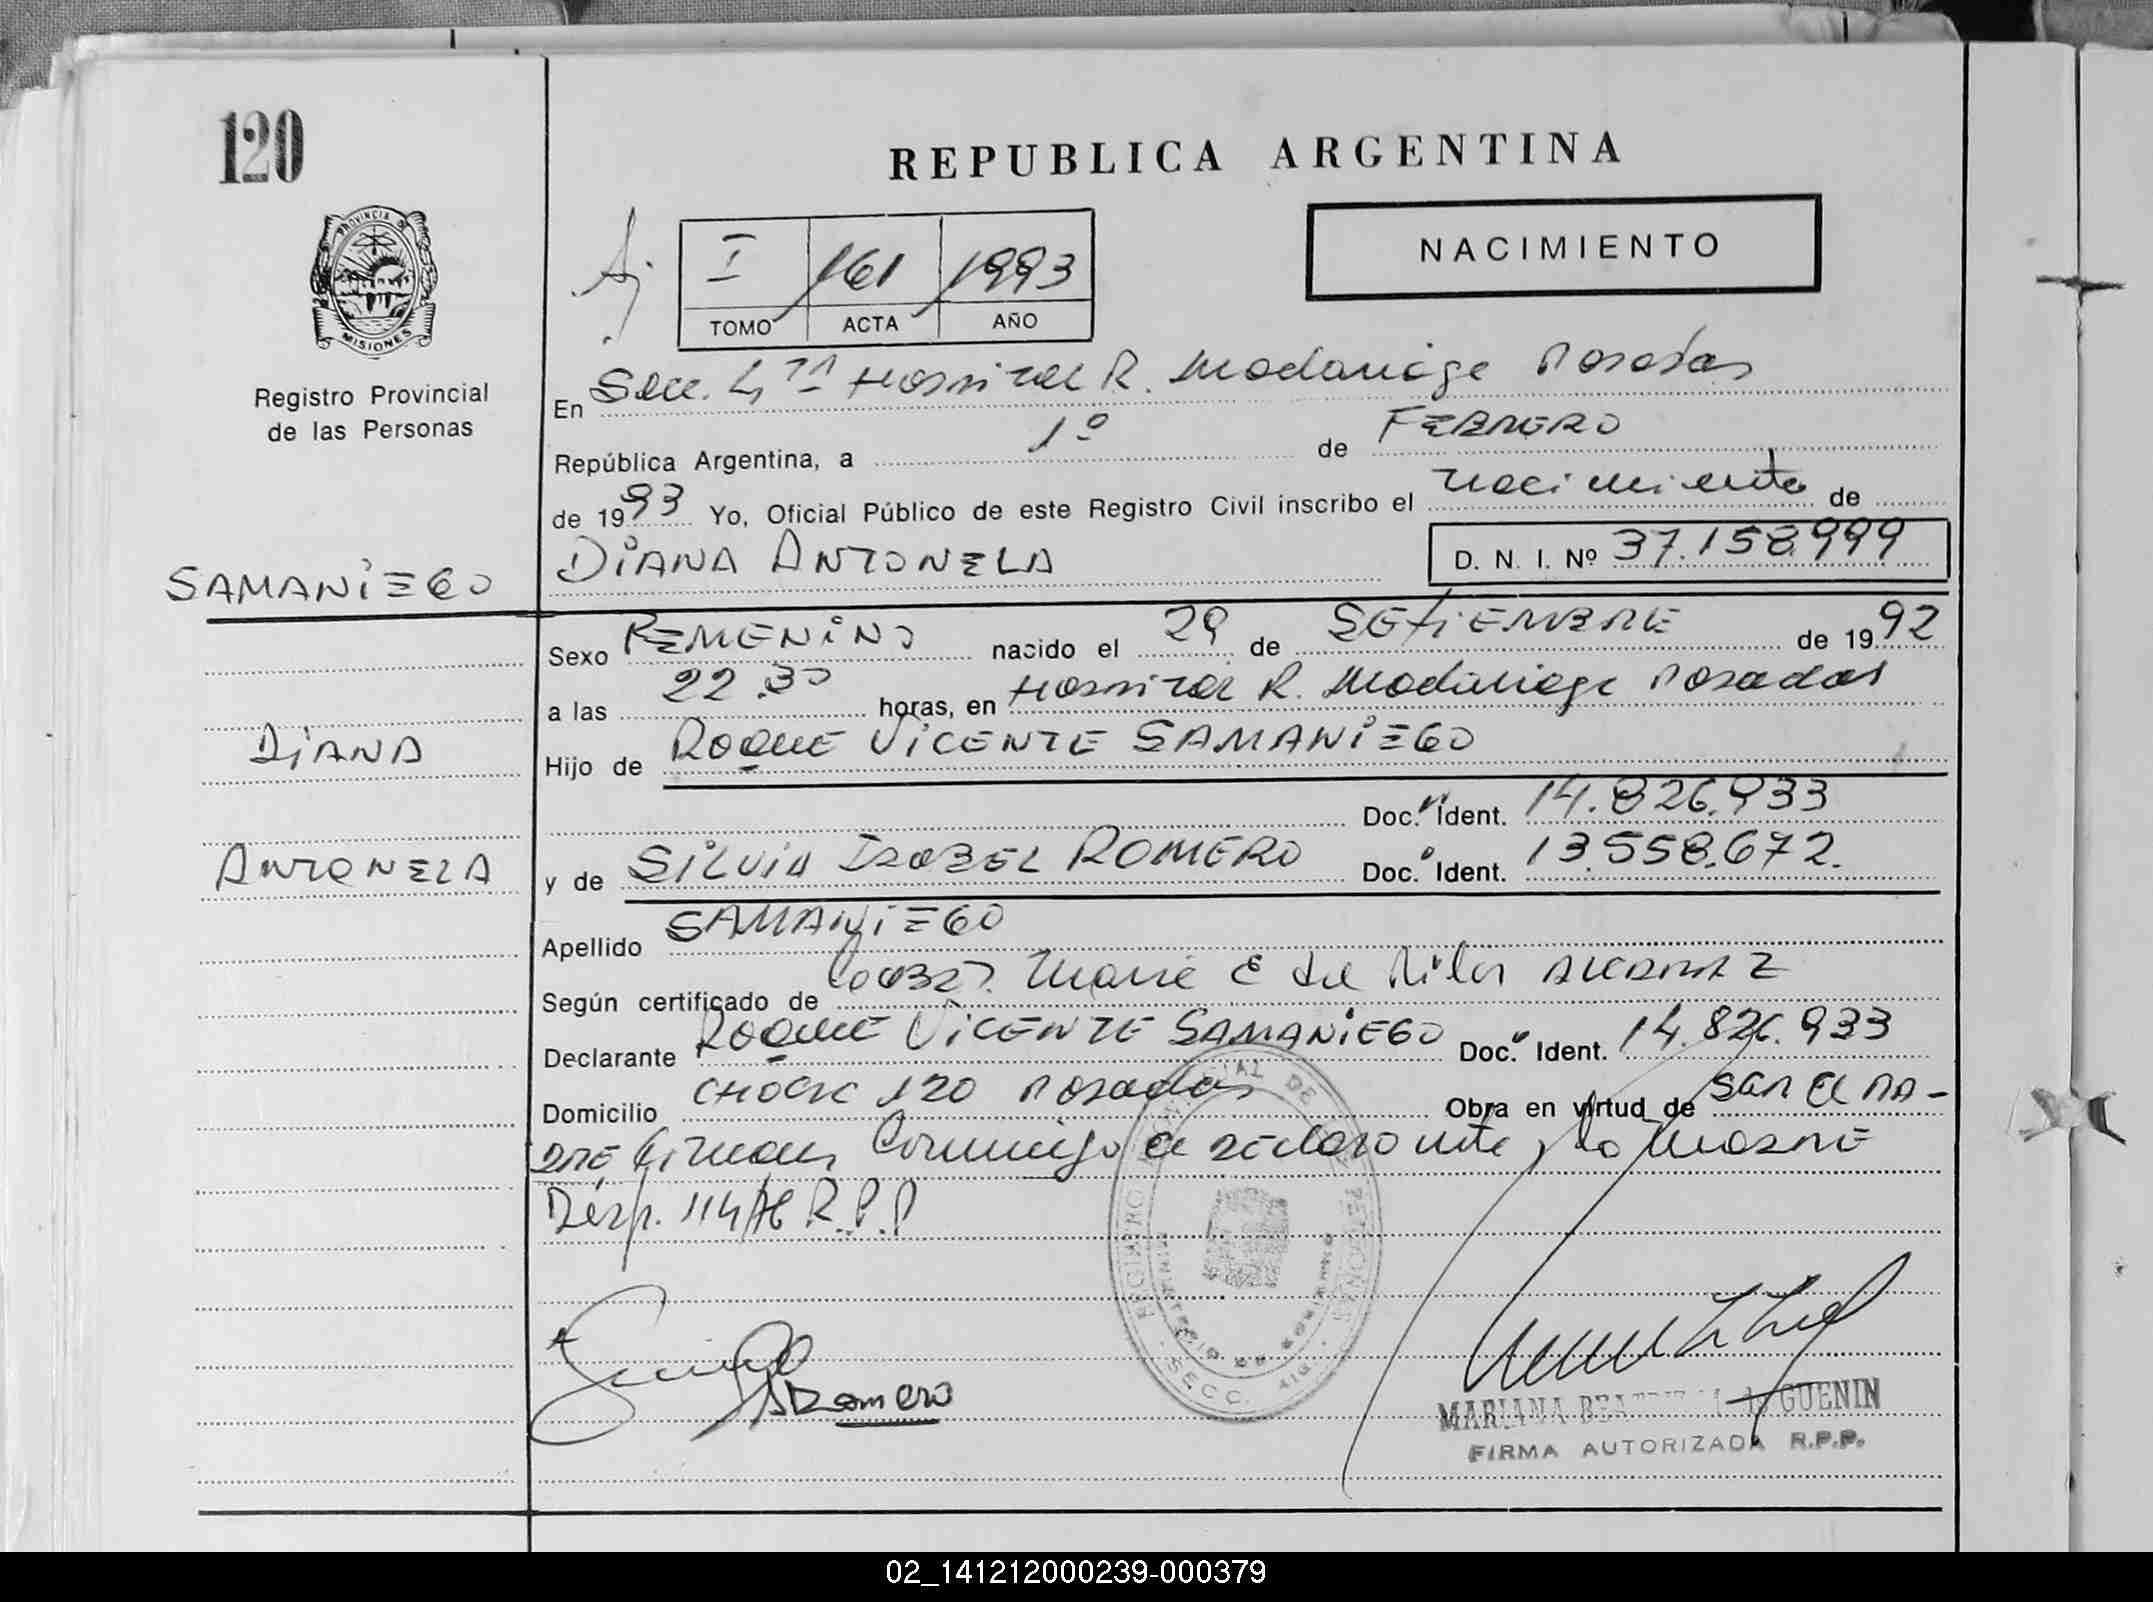 120
REPUBLICA ARGENTINA
PROVINCIA DE
MISIONES
Registro Provincial
de las Personas
I 161 1993
TOMO ACTA AÑO
NACIMIENTO
En Secc. 4ta Hospital R. Madariaga Posadas
República Argentina, a 1º de FEBRERO
de 1993 Yo, Oficial Público de este Registro Civil inscribo el nacimiento de
DIANA ANTONELA D. N. I. Nº 37.158.999
SAMANIEGO
Sexo FEMENINO nacido el 29 de SETIEMBRE de 1992
a las 22.30 horas, en Hospital R. Madariaga Posadas
DIANA
Hijo de ROQUE VICENTE SAMANIEGO
Doc. Ident. 14.826.933
ANTONELA
y de SILVIA ISABEL ROMERO Doc. Ident. 13.558.672.
Apellido SAMANIEGO
Según certificado de María E de ALCARAZ
Declarante ROQUE VICENTE SAMANIEGO Doc. Ident. 14.826.933
Domicilio 120 Posadas Obra en virtud de SER EL PA-
DRE firman Conmigo el declarante y la MADRE
Disp. 114/76 R.P.P
Romero
MARIANA BEATRIZ GUENIN
FIRMA AUTORIZADA R.P.P.
02_141212000239-000379